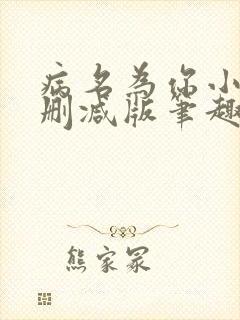 病名为你小
删减版笔趣
熊家冢